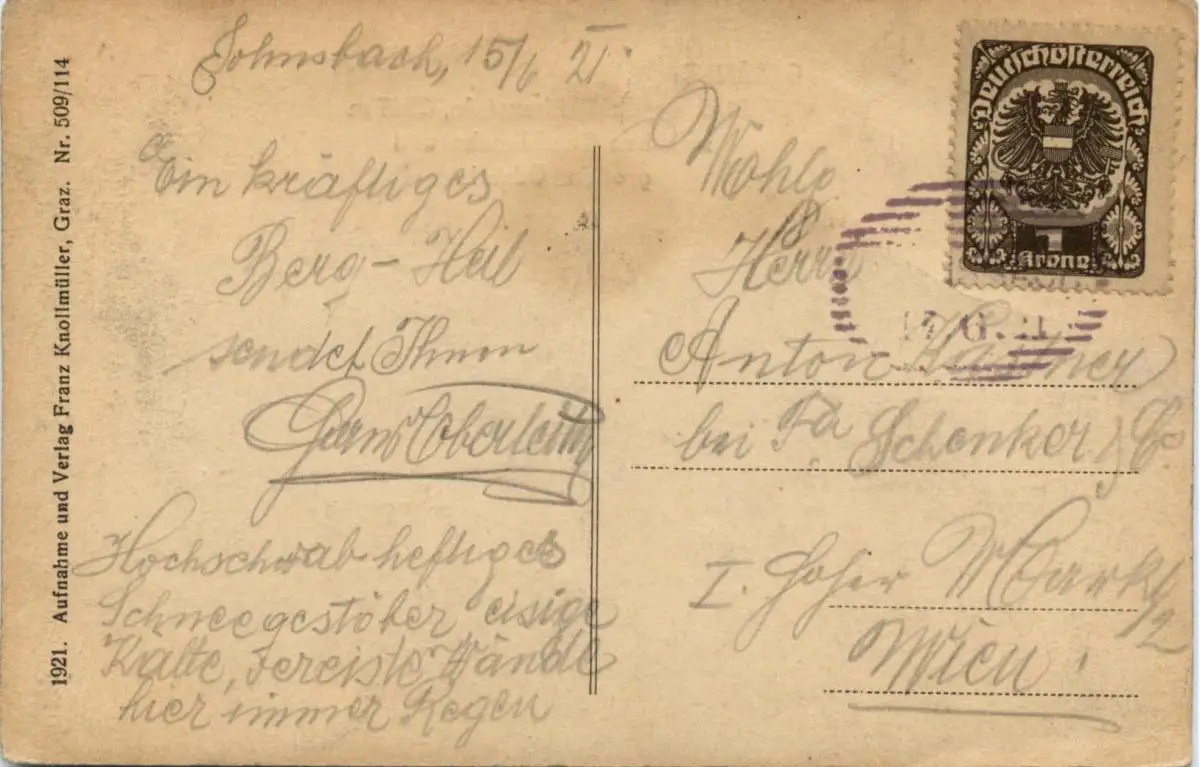 1921. Aufnahme und Verlag Franz Knollmüller, Graz. Nr. 509/114
Johnsbach, 15/6 21
Ein kräftiges
Berg-Heil
sendet Ihnen
Hans
Hochschwab heftiges
Schneegestöber eisige
Kälte, vereiste Wände
hier immer Regen
Deutschösterreich
1
Krone
17.6.21
Wohlg
Herrn
Anton
bei Fa Schenker & Co
I. Hoher Markt
Wien